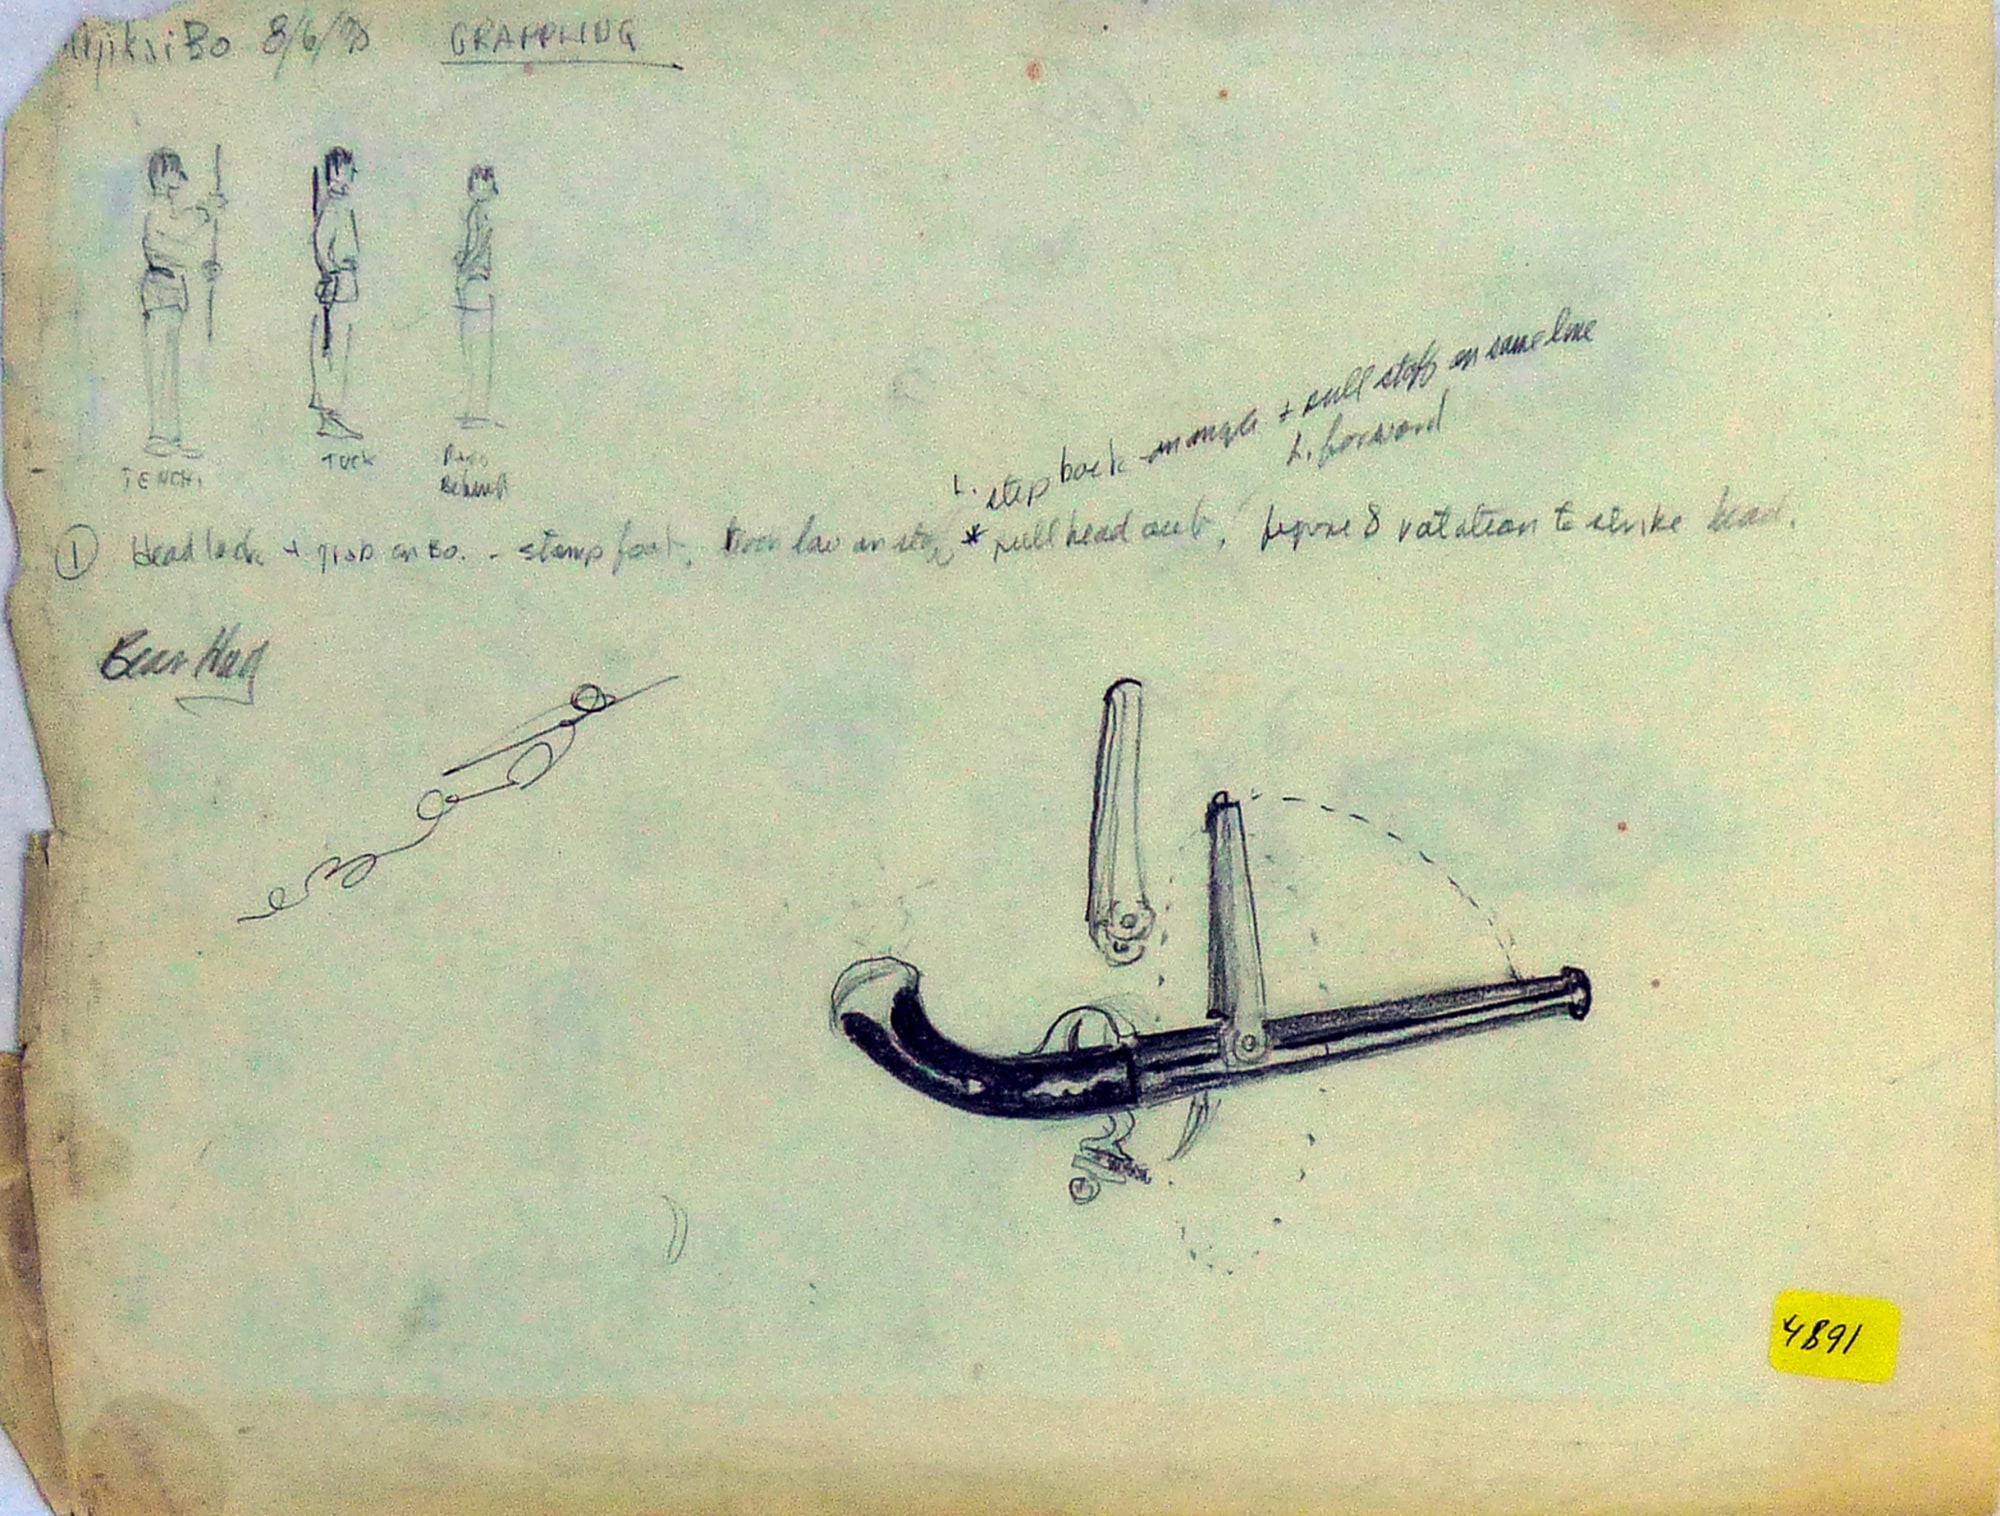 Bo 8/6/78 GRAPPLING
TENCHI
TUCK
PASS
Behind
L. step back on angle + pull staff on same line
L. forward
① Headlock + grab on Bo. - stomp foot, low on staff * pull head out, figure 8 rotation to strike head.
Bear Hug
4891